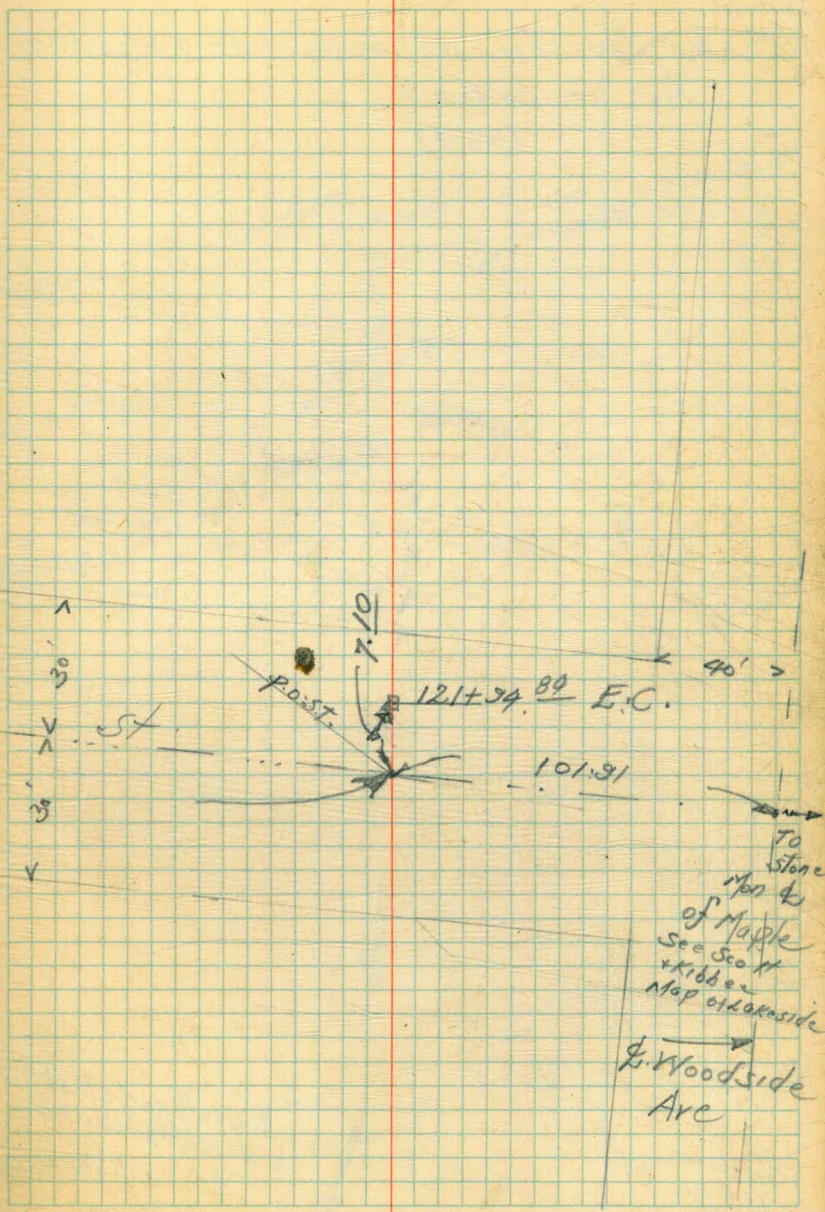 7.10
30'
40'
P.O.S.T.
121+94.89 E.C.
St.
101.91
30'
To
Stone
Mon ℄
of Maple
See Scott
+ Kibbee
Map of Lakeside
℄ Woodside
Ave